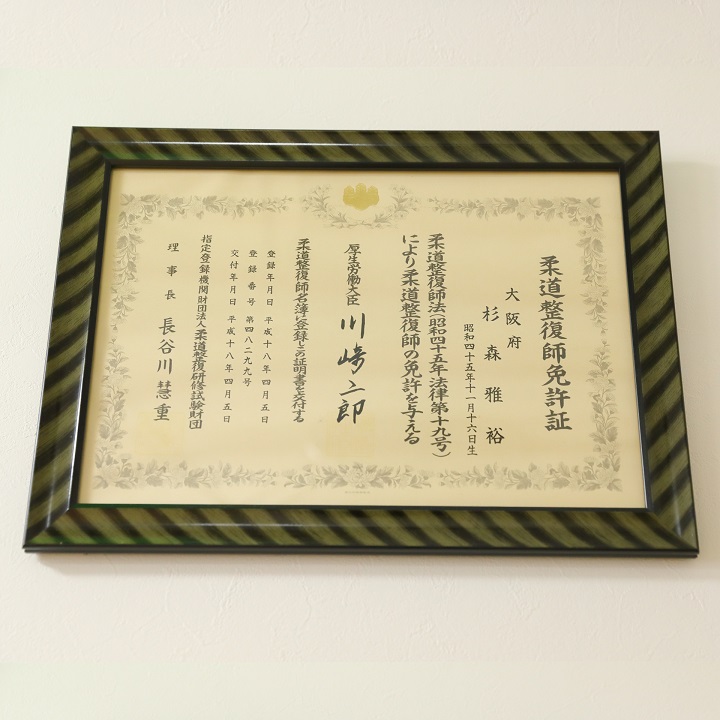 柔道整復師免許証
大阪府
杉森雅裕
昭和四十五年十一月十六日生
柔道整復師法(昭和四十五年法律第十九号)
により柔道整復師の免許を与える
厚生労働大臣 川崎二郎
柔道整復師名簿に登録しこの証明書を交付する
登録年月日 平成十八年四月五日
登録番号 第四八二九九号
交付年月日 平成十八年四月五日
指定登録機関財団法人柔道整復研修試験財団
理事長 長谷川慧重